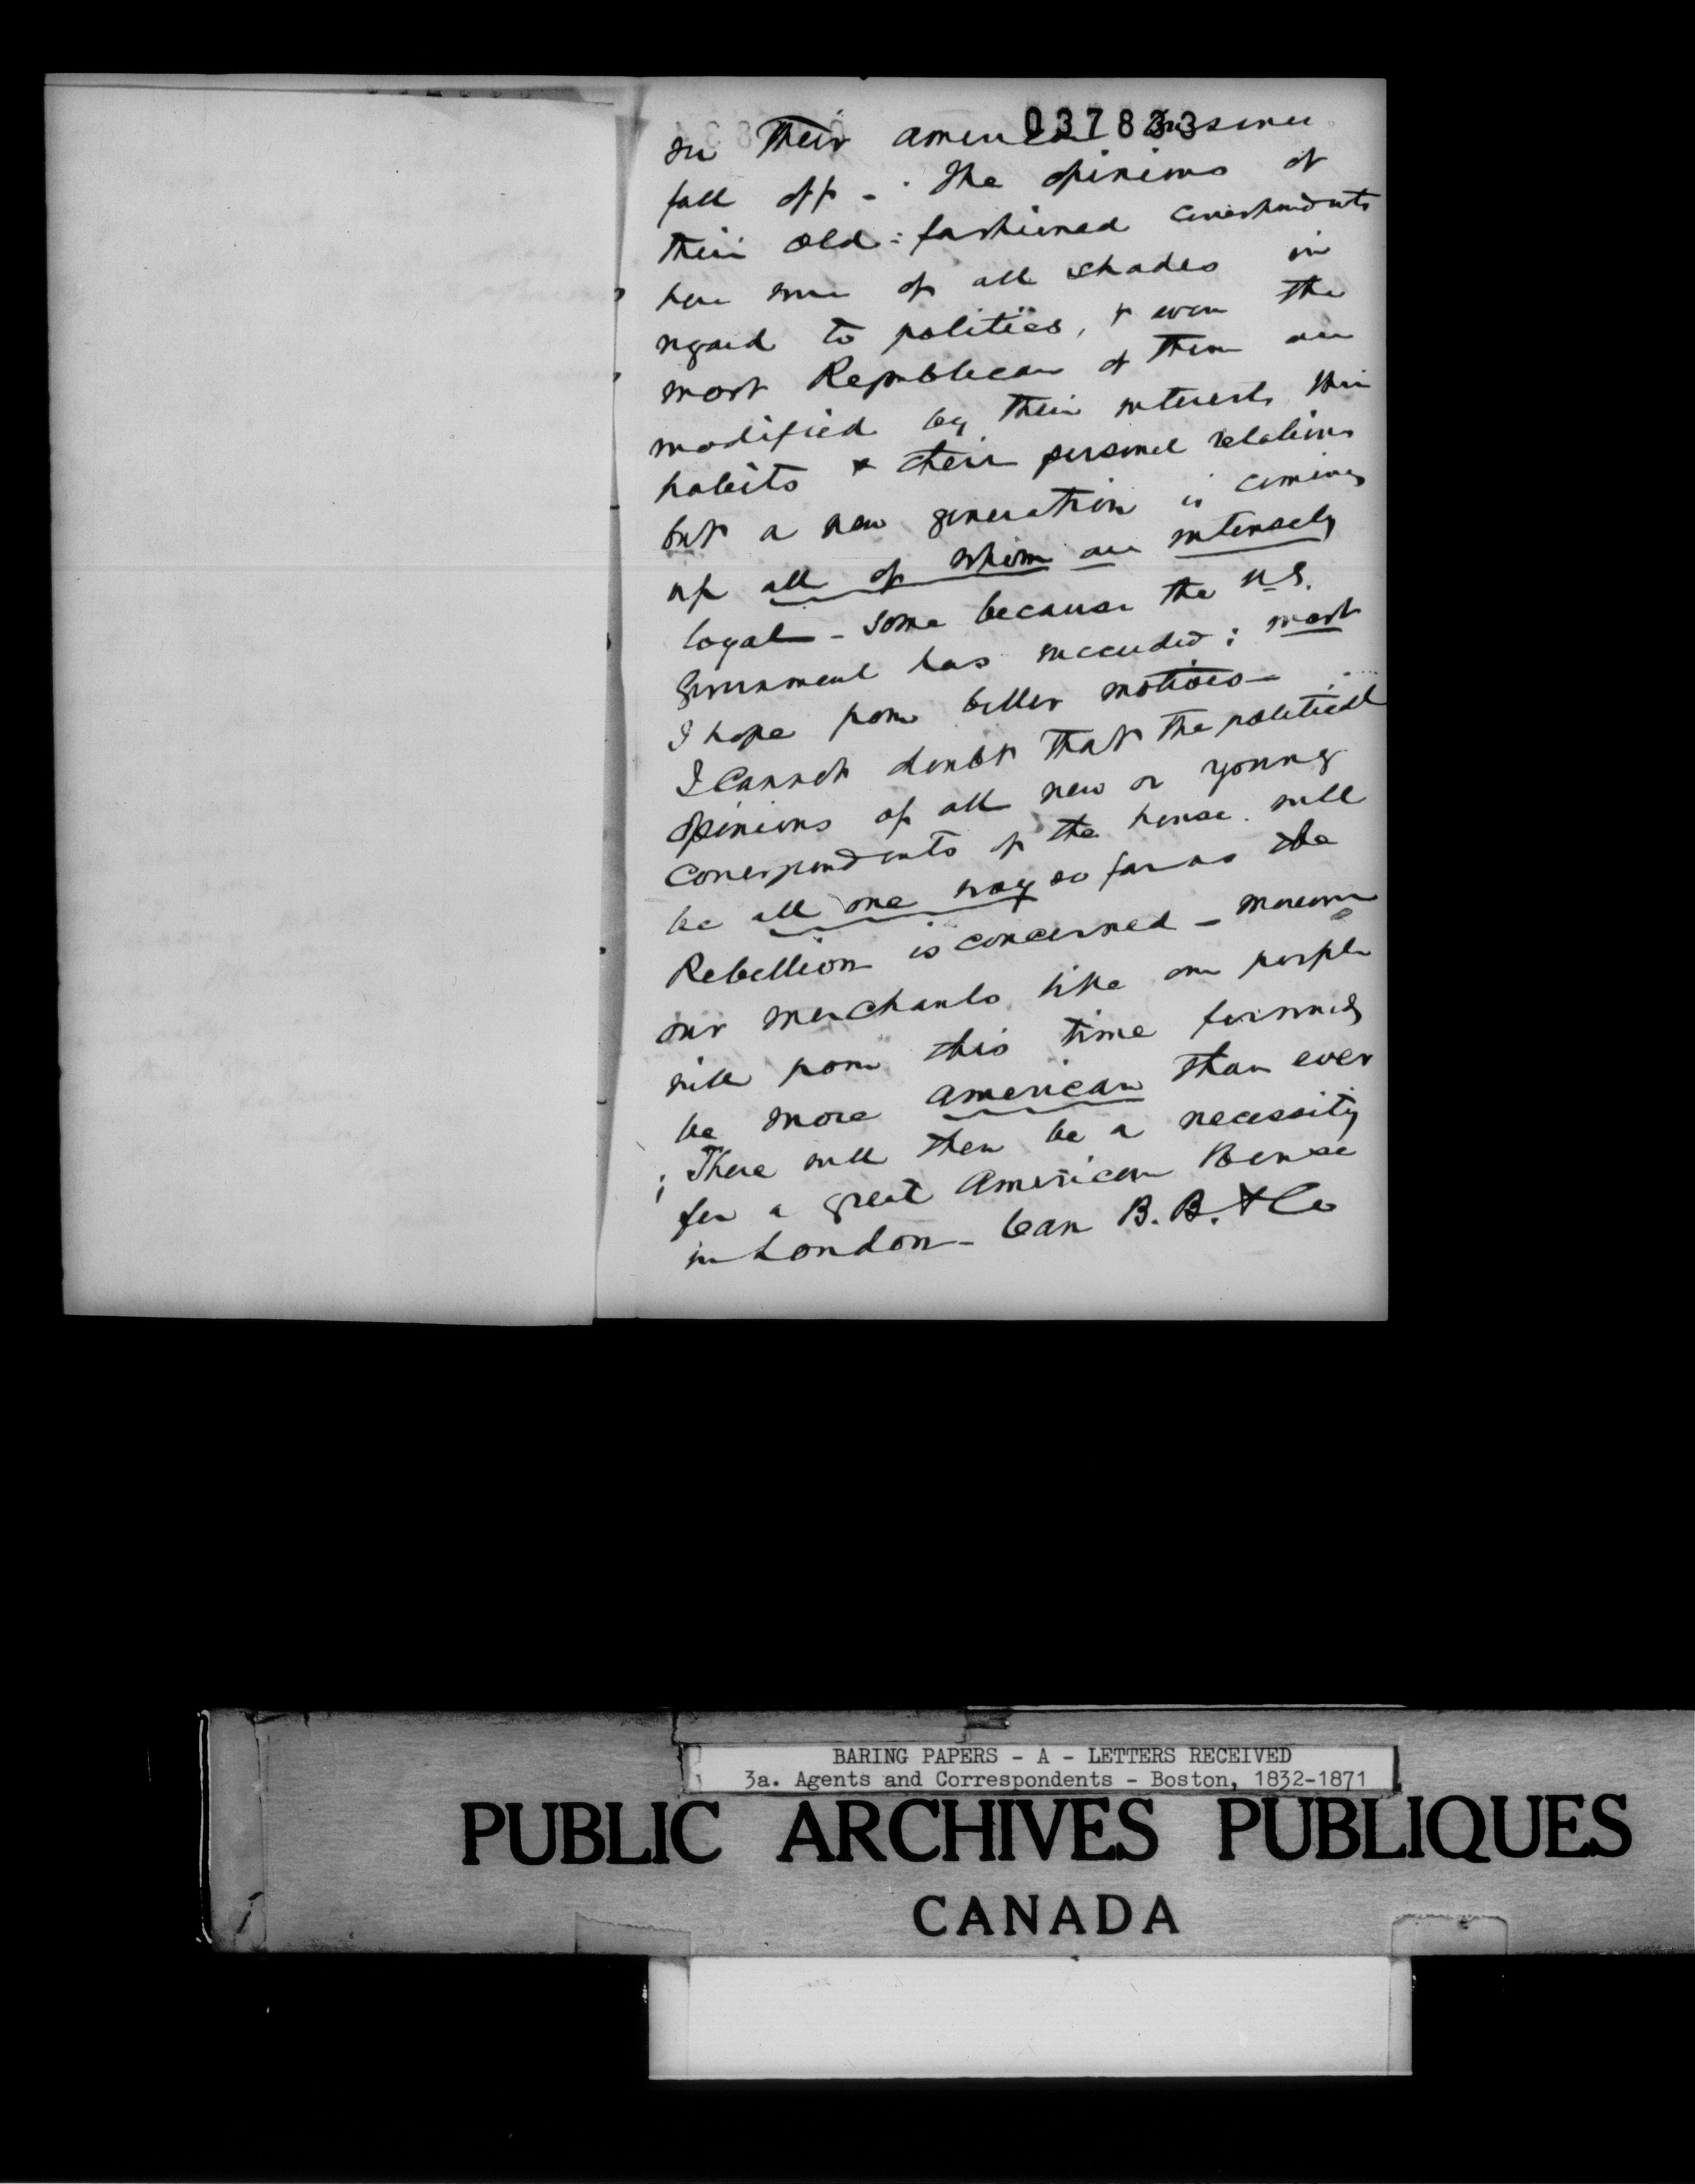 037833
or their American business
fall off - The opinions of
their old-fashioned correspondents
here were of all shades in
regard to politics, & even the
most Republican of them are
modified by their interests their
habits & their personal relations
but a new generation is coming
up all of whom are intensely
loyal - some because the U.S.
Government has succeeded; most
I hope from better motives -
I cannot doubt that the political
opinions of all new or young
correspondents of the house will
be all one way so far as the
Rebellion is concerned - moreover
our merchants like our people
will from this time forward
be more American than ever
; There will then be a necessity
for a great American House
in London - Can B. B. & Co
BARING PAPERS - A - LETTERS RECEIVED
3a. Agents and Correspondents - Boston, 1832-1871
PUBLIC ARCHIVES PUBLIQUES
CANADA